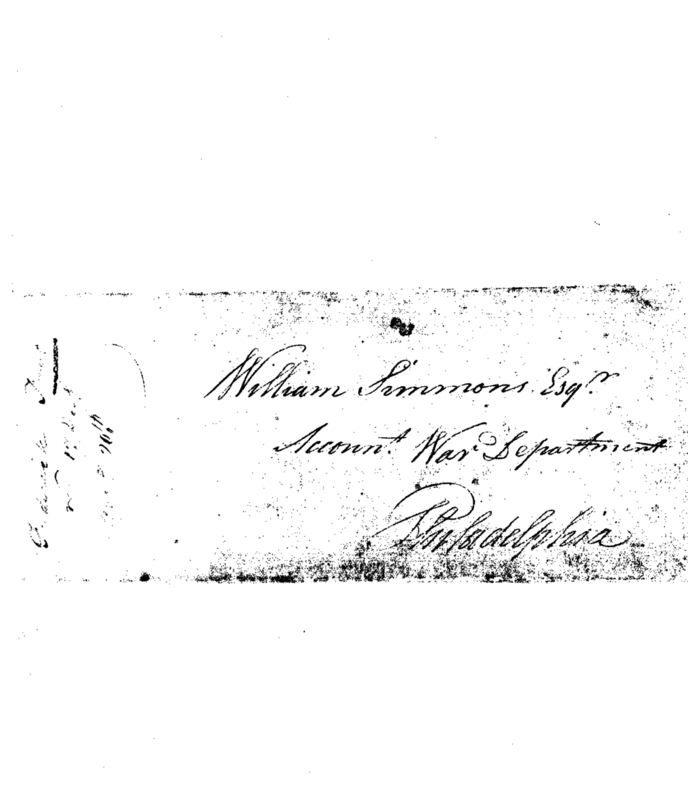 William Simmons Esqr.
Account. War Department
Philadelphia
20th